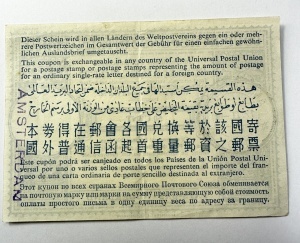 Dieser Schein wird in allen Ländern des Weltpostvereins gegen ein oder meh-
rere Postwertzeichen im Gesamtwert der Gebühr für einen einfachen gewöhn-
lichen Auslandsbrief umgetauscht.
This coupon is exchangeable in any country of the Universal Postal Union
for a postage stamp or postage stamps representing the amount of postage
for an ordinary single-rate letter destined for a foreign country.
هذه القسيمة يمكن استبدالها في جميع البلاد التابعة لاتحاد البريد العام
بطابع أو طوابع بريد
本券得在郵會各國兌換等於該國寄
外國普通信函起首重量郵資之郵票
Este cupón podrá ser canjeado en todos los Países de la Unión Postal Uni-
versal por uno o varios sellos postales que representen el importe del fran-
queo de una carta ordinaria de porte sencillo destinada al extranjero.
Этот купон во всех странах Всемирного Почтового Союза обменивается
на почтовую марку или марки на сумму представляющую собой стоимость
оплаты простого письма в одну единицу веса по адресу за границу.
AMSTERDAM